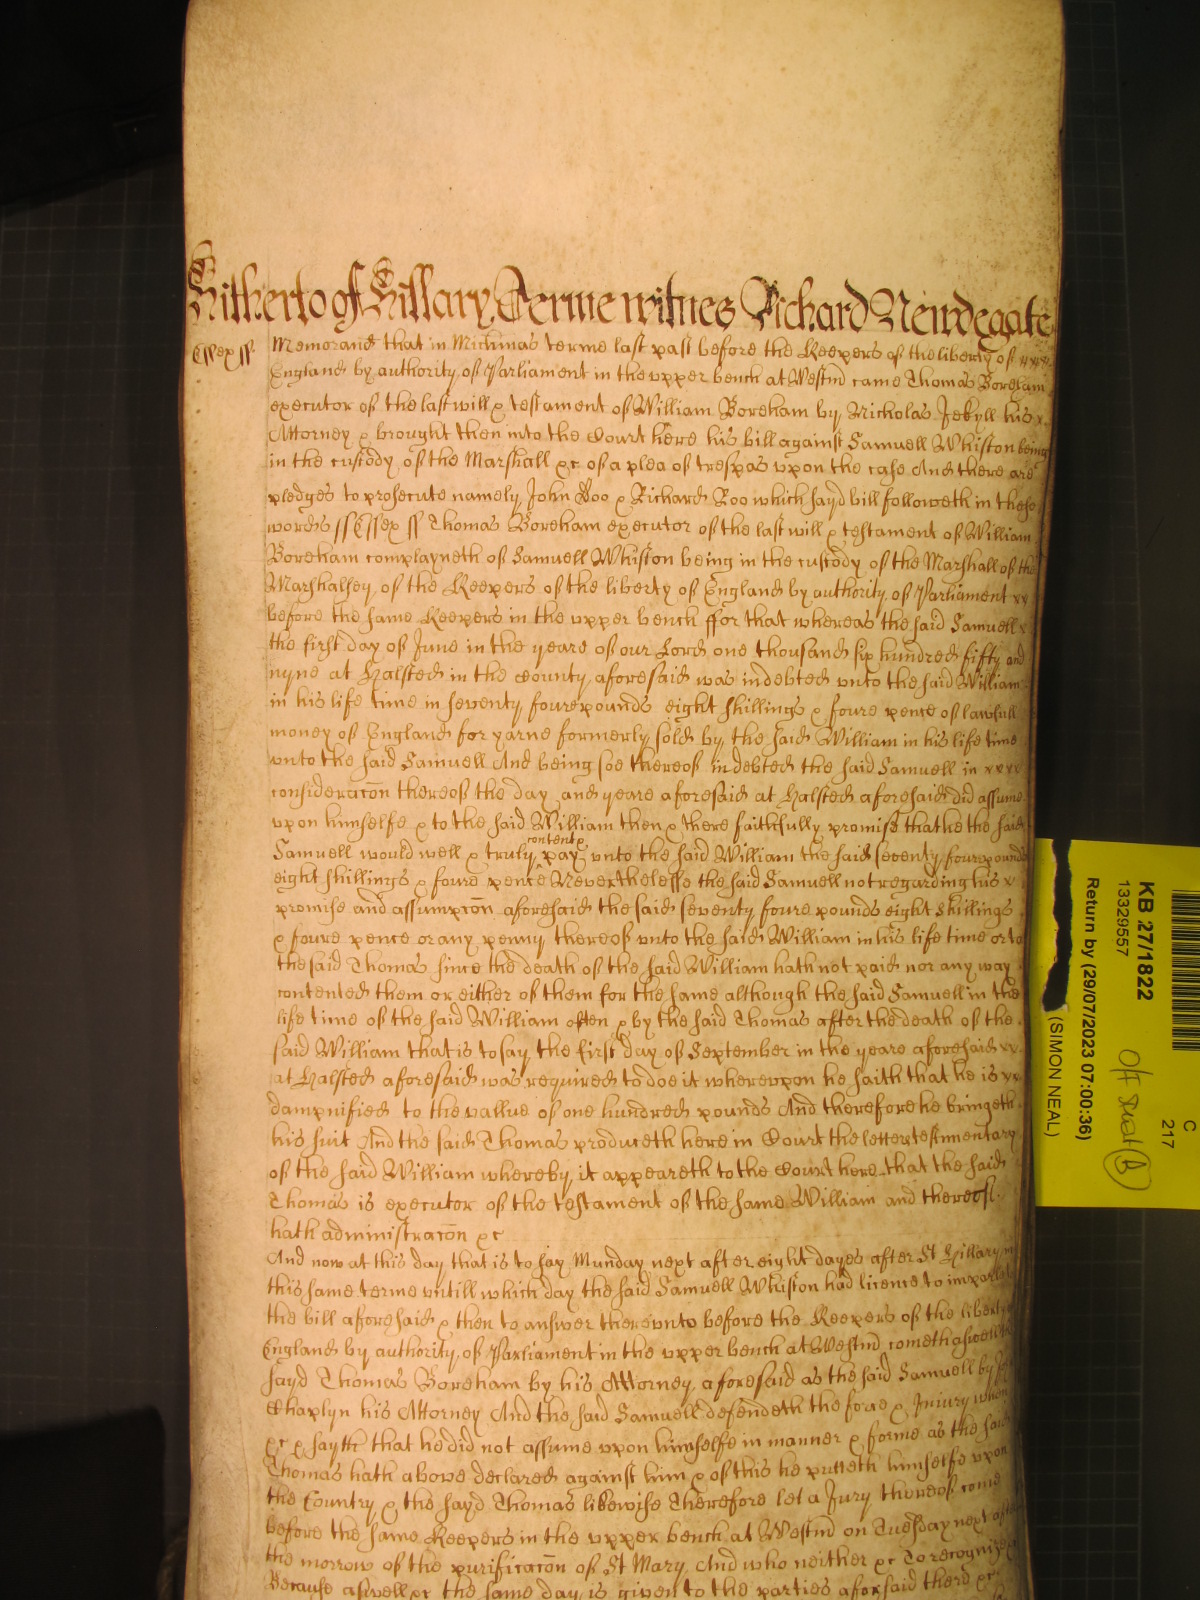 Hitherto of Hillary Terme witnes Richard Newdegate
Essex ss. Memorand that in Michmas terme last past before the Keepers of the liberty of
England by authority of Parliament in the upper bench at Westm came Thomas Boreham
executor of the last will & testament of William Boreham by Nicholas Jekyll his
Attorney & brought then into the Court here his bill against Samuell Whiston being
in the custody of the Marshall &c of a plea of trespas upon the case And there are
pledges to prosecute namely John Doo & Richard Roo which sayd bill followeth in these
words ss Essex ss Thomas Boreham executor of the last will & testament of William
Boreham complayneth of Samuell Whiston being in the custody of the Marshall of the
Marshalsey of the Keepers of the liberty of England by authority of Parliament
before the same Keepers in the upper bench ffor that whereas the said Samuell
the first day of June in the yeare of our Lord one thousand six hundred fifty and
nyne at Halsted in the County aforesaid was indebted unto the said William
in his life time in seventy foure pounds eight shillings & foure pence of lawfull
money of England for yarne formerly sold by the said William in his life time
unto the said Samuell And being soe thereof indebted the said Samuell in
consideracon thereof the day and yeare aforesaid at Halsted aforesaid did assume
upon himselfe & to the said William then & there faithfully promise that he the said
Samuell would well & truly content & pay unto the said William the said seventy foure pounds
eight shillings & foure pence Neverthelesse the said Samuell not regarding his
promise and assumpcon aforesaid the said seventy foure pounds eight shillings
& foure pence or any penny thereof unto the said William in his life time or to
the said Thomas since the death of the said William hath not paid nor any way
contented them or either of them for the same although the said Samuell in the
life time of the said William often & by the said Thomas after the death of the
said William that is to say the first day of September in the yeare aforesaid
at Halsted aforesaid was required to doe it whereupon he saith that he is
dampnified to the vallue of one hundred pounds And therefore he bringeth
his suit And the said Thomas produceth here in Court the letters testimentary
of the said William whereby it appeareth to the Court here that the said
Thomas is executor of the testament of the same William and thereof
hath administracon &c
And now at this day that is to say Munday next after eight dayes after St Hillary in
this same terme untill which day the said Samuell Whiston had licence to imparle to
the bill aforesaid & then to answer thereunto before the Keepers of the liberty of
England by authority of Parliament in the upper bench at Westm cometh aswell the
sayd Thomas Boreham by his Attorney aforesaid as the said Samuell by
Chaplyn his Attorney And the said Samuell defendeth the force & Injury when
&c & sayth that he did not assume upon himselfe in manner & forme as the said
Thomas hath above declared against him & of this he putteth himselfe upon
the Country & the sayd Thomas likewise Therefore let a Jury thereof come
before the same Keepers in the upper bench at Westm on Tuesday next after
the morrow of the purificacon of St Mary And who neither &c To recognize
Because aswell &c the same day is given to the parties aforsaid there &c
C
217
KB 27/1822
13329557
Return by (29/07/2023 07:00:36)
(SIMON NEAL)